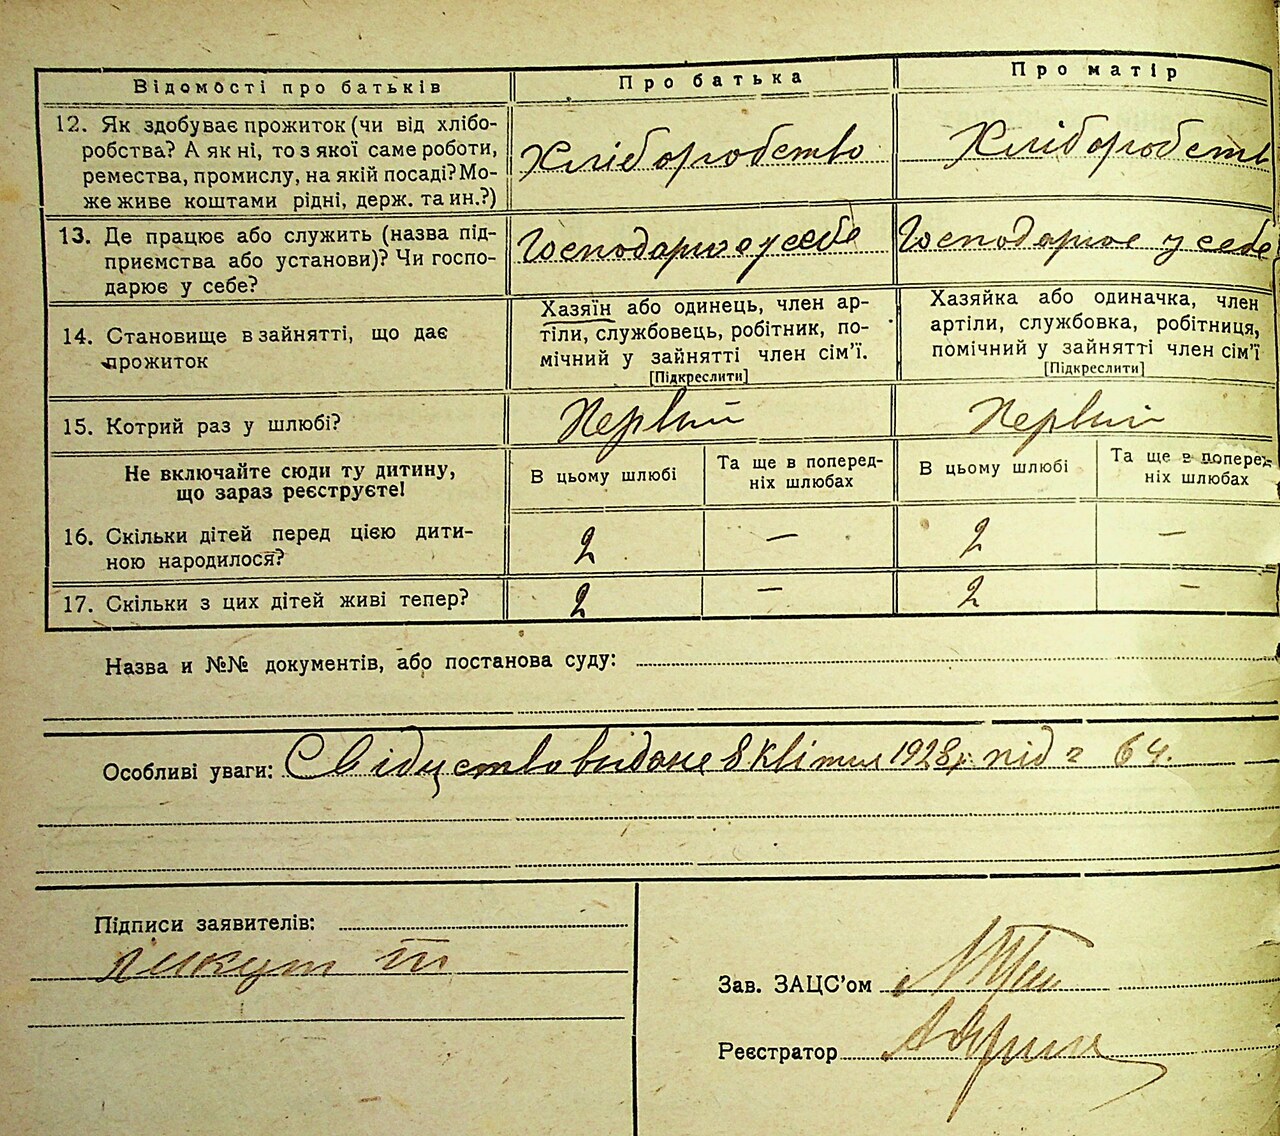 Відомості про батьків Про батька Про матір
12. Як здобуває прожиток (чи від хлібо-
робства? А як ні, то з якої саме роботи,
ремества, промислу, на якій посаді? Мо-
же живе коштами рідні, держ. та ин.?)
Хліборобство Хліборобств
13. Де працює або служить (назва під-
приємства або установи)? Чи госпо-
дарює у себе?
Господарює у себе Господарює у себе
14. Становище в зайнятті, що дає
прожиток
Хазяїн або одинець, член ар-
тіли, службовець, робітник, по-
мічний у зайнятті член сім'ї.
[Підкреслити]
Хазяйка або одиначка, член
артіли, службовка, робітниця,
помічний у зайнятті член сім'ї
[Підкреслити]
15. Котрий раз у шлюбі? Первий Первий
Не включайте сюди ту дитину,
що зараз реєструєте!
В цьому шлюбі
Та ще в поперед-
ніх шлюбах
В цьому шлюбі
Та ще в поперед-
ніх шлюбах
16. Скільки дітей перед цією дити-
ною народилося?
2 — 2 —
17. Скільки з цих дітей живі тепер? 2 — 2 —
Назва и №№ документів, або постанова суду:
Особливі уваги: Свідоцтво видане 8 квітня 1928 р. під № 64.
Підписи заявителів:
Зав. ЗАЦС'ом
Реєстратор